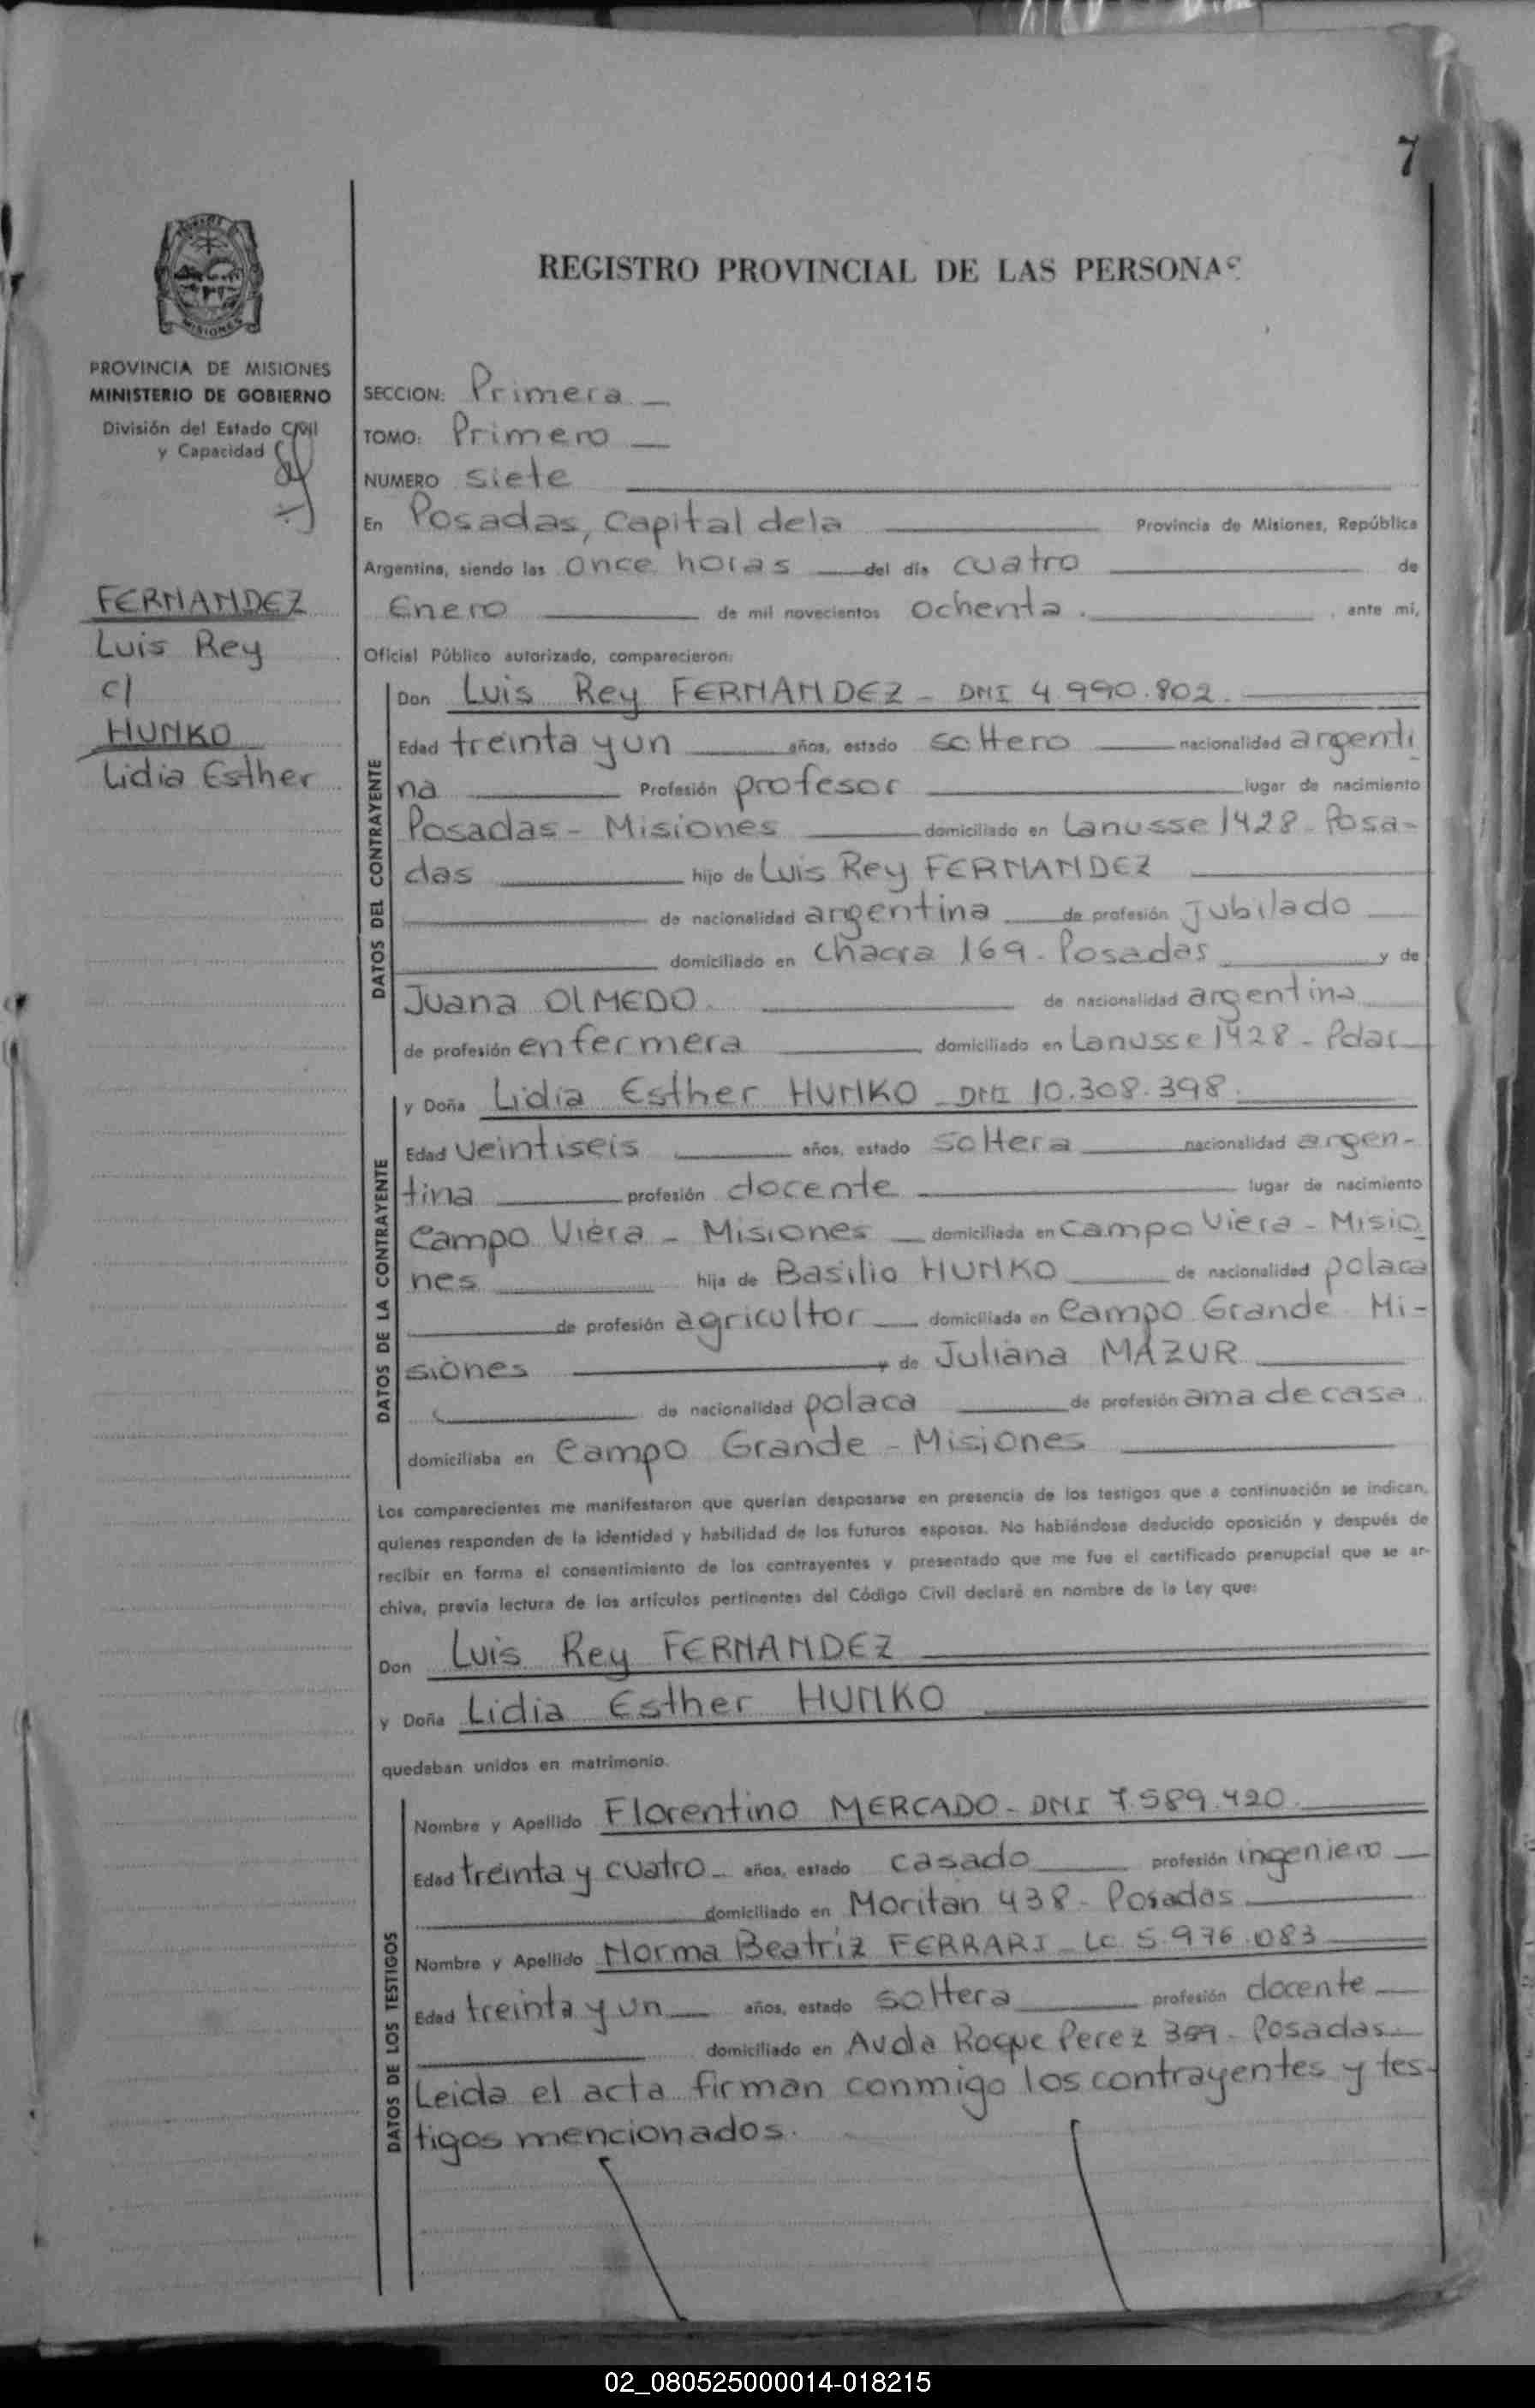 7
MISIONES
PROVINCIA DE MISIONES
MINISTERIO DE GOBIERNO
División del Estado Civil
y Capacidad
FERNANDEZ
Luis Rey
c/
HUNKO
Lidia Esther
REGISTRO PROVINCIAL DE LAS PERSONAS
SECCION: Primera
TOMO: Primero
NUMERO siete
En Posadas, capital de la Provincia de Misiones, República
Argentina, siendo las once horas del día cuatro de
Enero de mil novecientos ochenta. , ante mí,
Oficial Público autorizado, comparecieron:
DATOS DEL CONTRAYENTE
Don Luis Rey FERNANDEZ - DNI 4.990.802.
Edad treinta y un años, estado soltero nacionalidad argenti
na Profesión profesor lugar de nacimiento
Posadas - Misiones domiciliado en Lanusse 1428 - Posa-
das hijo de Luis Rey FERNANDEZ
de nacionalidad argentina de profesión jubilado
domiciliado en chacra 169 - Posadas y de
Juana OLMEDO. de nacionalidad argentina
de profesión enfermera domiciliado en Lanusse 1428 - Pdas
DATOS DE LA CONTRAYENTE
y Doña Lidia Esther HUNKO - DNI 10.308.398.
Edad veintiseis años, estado soltera nacionalidad argen-
tina profesión docente lugar de nacimiento
Campo Viera - Misiones domiciliada en Campo Viera - Misio
nes hija de Basilio HUNKO de nacionalidad polaca
de profesión agricultor domiciliada en Campo Grande Mi-
siones y de Juliana MAZUR
de nacionalidad polaca de profesión ama de casa.
domiciliaba en Campo Grande - Misiones
Los comparecientes me manifestaron que querían desposarse en presencia de los testigos que a continuación se indican,
quienes responden de la identidad y habilidad de los futuros esposos. No habiéndose deducido oposición y después de
recibir en forma el consentimiento de los contrayentes y presentado que me fue el certificado prenupcial que se ar-
chiva, previa lectura de los artículos pertinentes del Código Civil declaré en nombre de la Ley que:
Don Luis Rey FERNANDEZ
y Doña Lidia Esther HUNKO
quedaban unidos en matrimonio.
DATOS DE LOS TESTIGOS
Nombre y Apellido Florentino MERCADO - DNI 7.589.420.
Edad treinta y cuatro años, estado casado profesión ingeniero
domiciliado en Moritan 438 - Posadas
Nombre y Apellido Norma Beatriz FERRARI - LC 5.976.083
Edad treinta y un años, estado soltera profesión docente
domiciliado en Avda Roque Perez - Posadas
Leida el acta firman conmigo los contrayentes y tes-
tigos mencionados.
02_080525000014-018215